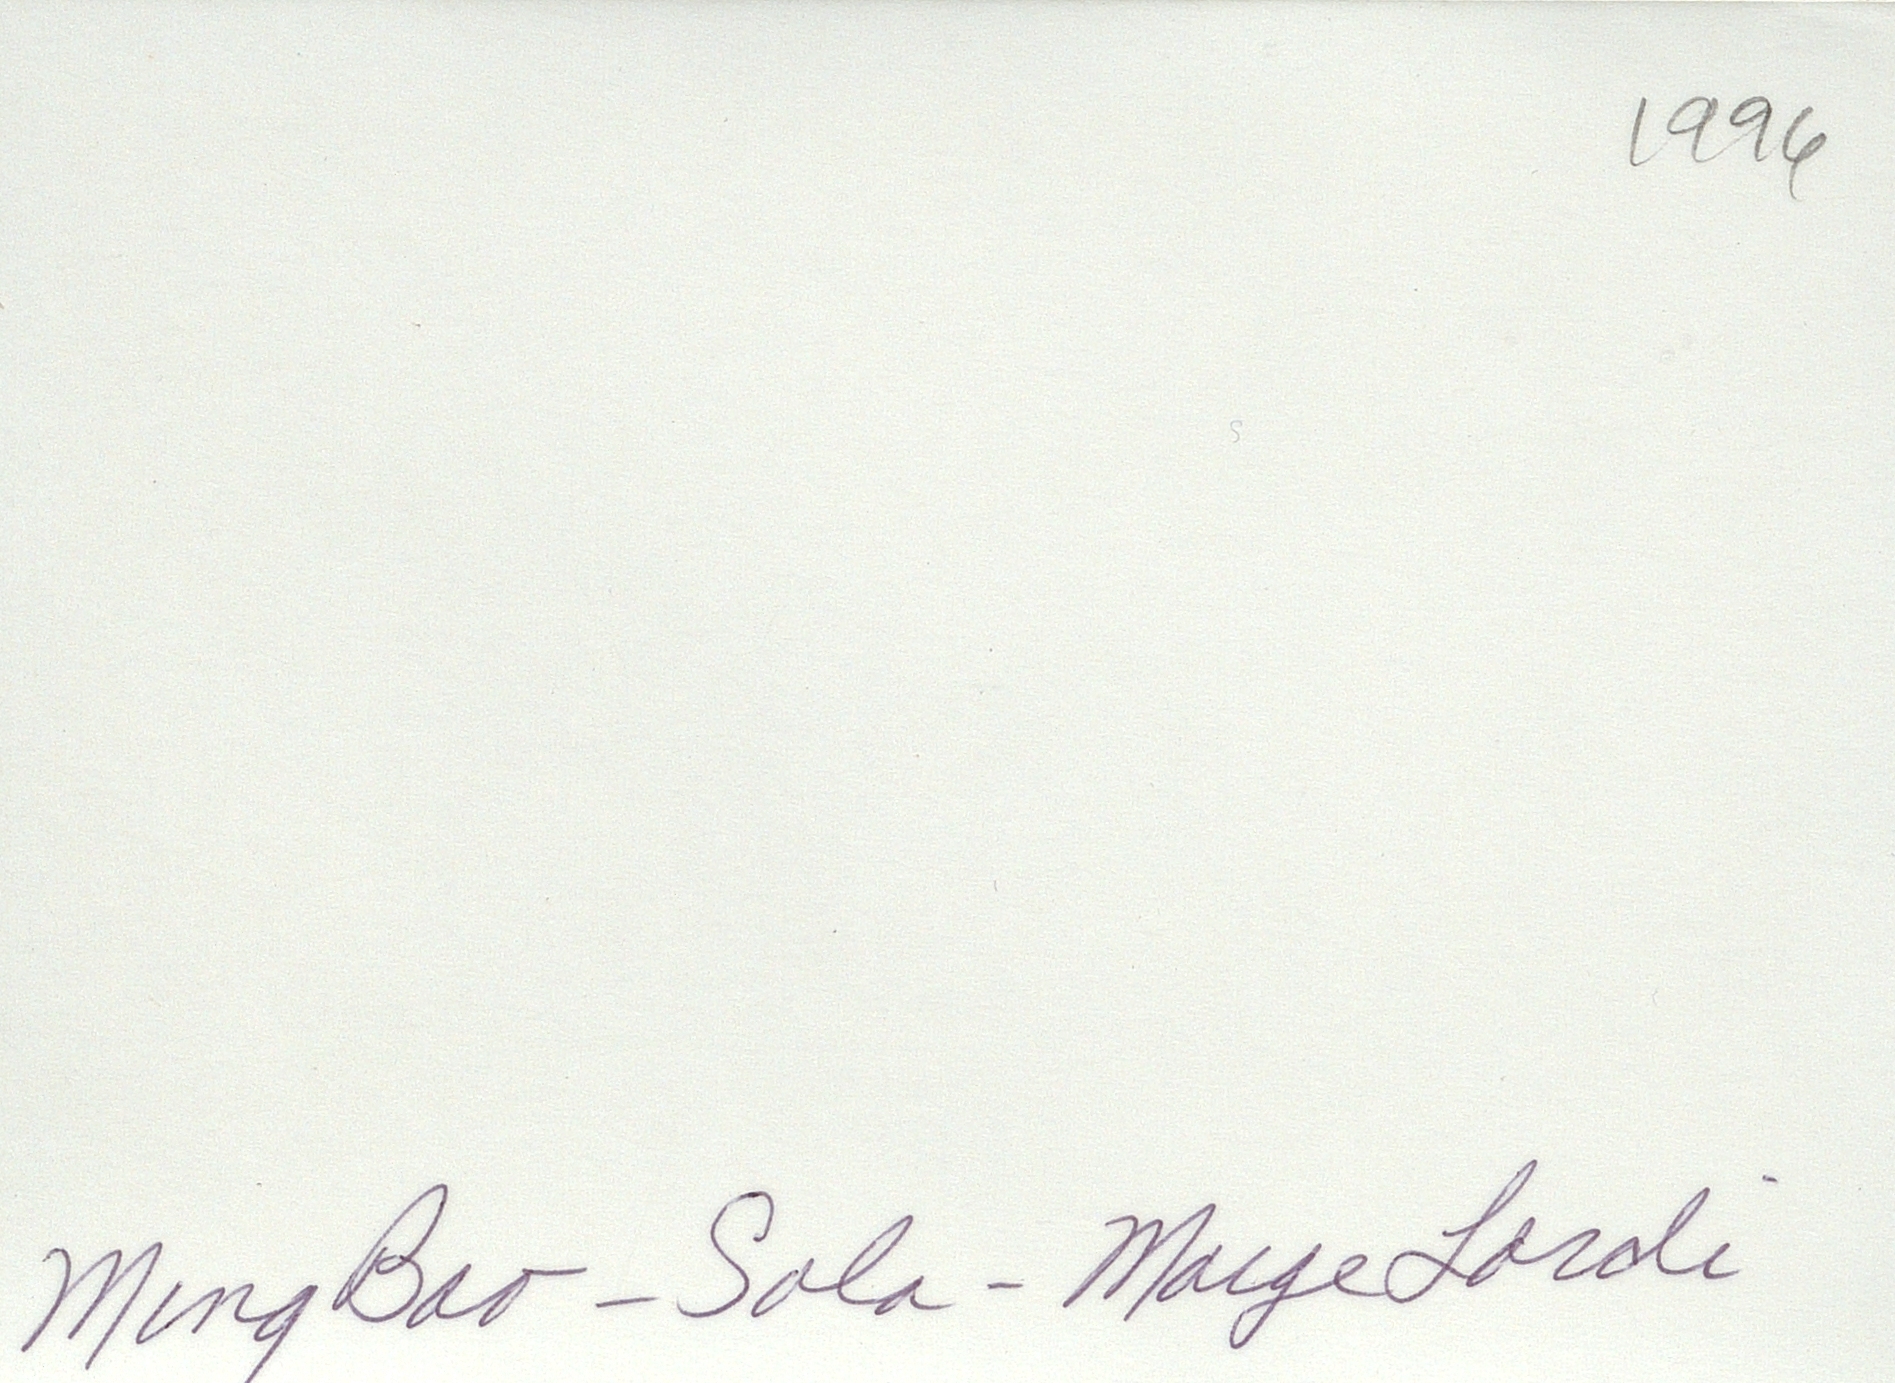 1996
Ming Bao - Sola - Marge Lordi